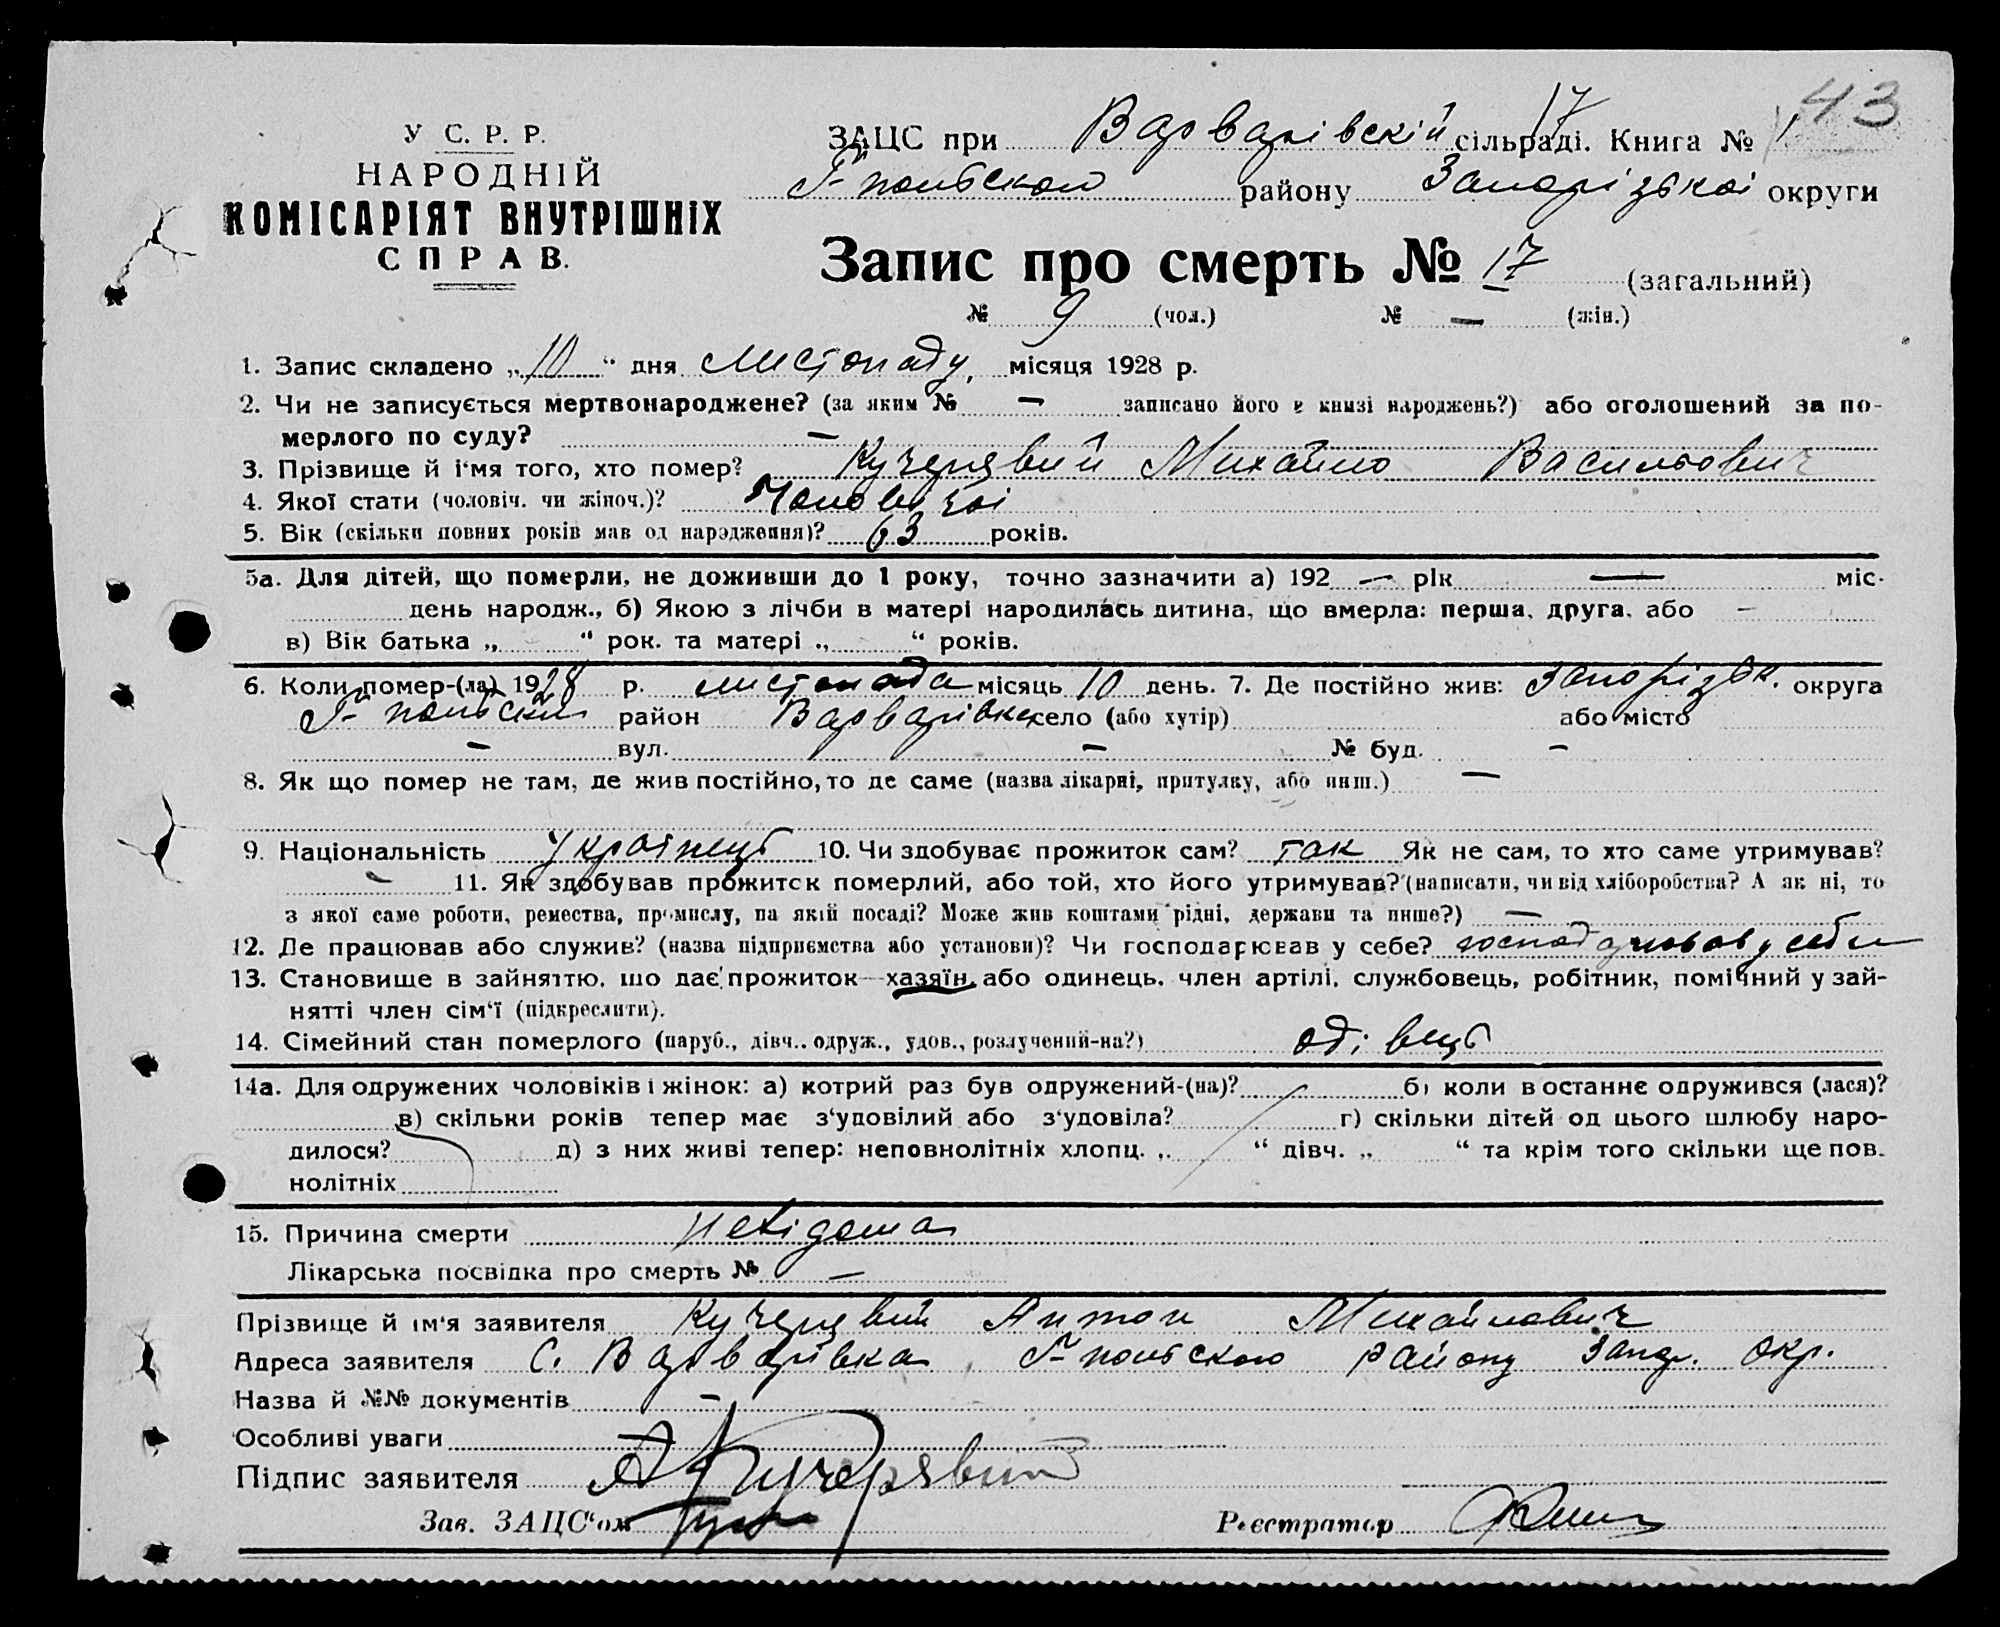 43
17
У С. Р. Р.
НАРОДНІЙ
КОМІСАРІЯТ ВНУТРІШНІХ
СПРАВ.
ЗАЦС при Варварівскій сільраді. Книга № 1
Г-польского району Запорізькоі округи
Запис про смерть № 17 (загальний)
№ 9 (чол.) № — (жін.)
1. Запис складено „10“ дня листопаду, місяця 1928 р.
2. Чи не записується мертвонароджене? (за яким № — записано його в книзі народжень?) або оголошений за по-
мерлого по суду? —
3. Прізвище й і'мя того, хто помер? Кучерявий Михайло Васильович
4. Якої стати (чоловіч. чи жіноч.)? Чоловічоі
5. Вік (скільки повних років мав од народження)? 63 років.
5а. Для дітей, що померли, не доживши до 1 року, точно зазначити а) 192 — рік — міс.
день народж., б) Якою з лічби в матері народилась дитина, що вмерла: перша, друга, або —
в) Вік батька „ “ рок. та матері „ “ років.
6. Коли помер-(ла) 1928 р. листопада місяць 10 день. 7. Де постійно жив: Запорізьк. округа
Г-польский район Варварівка село (або хутір) або місто
— вул. — № буд. —
8. Як що помер не там, де жив постійно, то де саме (назва лікарні, притулку, або инш.) —
9. Національність Українець 10. Чи здобуває прожиток сам? так Як не сам, то хто саме утримував?
— 11. Як здобував прожиток померлий, або той, хто його утримував? (написати, чи від хліборобства? А як ні, то
з якої саме роботи, ремества, промислу, на якій посаді? Може жив коштами рідні, держави та инше?) —
12. Де працював або служив? (назва підприємства або установи)? Чи господарював у себе? господарював у себе
13. Становище в зайняттю, що дає прожиток—хазяїн, або одинець, член артілі, службовець, робітник, помічний у зай-
нятті член сім'ї (підкреслити).
14. Сімейний стан померлого (паруб., дівч., одруж., удов., розлучений-на?) одівець
14а. Для одружених чоловіків і жінок: а) котрий раз був одружений-(на)? б) коли в останнє одружився (лася)?
в) скільки років тепер має з'удовілий або з'удовіла? г) скільки дітей од цього шлюбу наро-
дилося? д) з них живі тепер: неповнолітніх хлопц. „ “ дівч. „ “ та крім того скільки ще пов-
нолітніх
15. Причина смерти невідома
Лікарська посвідка про смерть № —
Прізвище й ім'я заявителя Кучерявий Антон Михайлович
Адреса заявителя С. Варварівка Г-польского району Запор. окр.
Назва й №№ документів —
Особливі уваги
Підпис заявителя А Кучерявий
Зав. ЗАЦС'ом Реєстратор